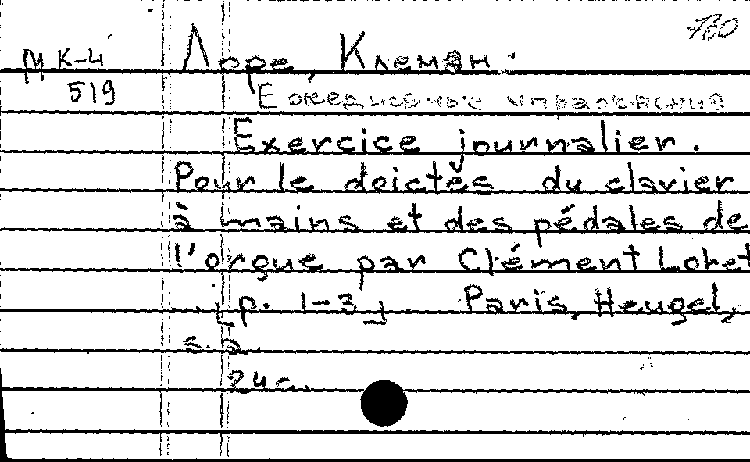 МК-4 Лоре, Клеман.
519 Ежедневные упражнения
Exercice journalier.
Pour le doictés du clavier
à mains et des pédales de
l'orgue par Clément Loret
[p. 1-3] Paris, Heugel,
s.a.
24 с.